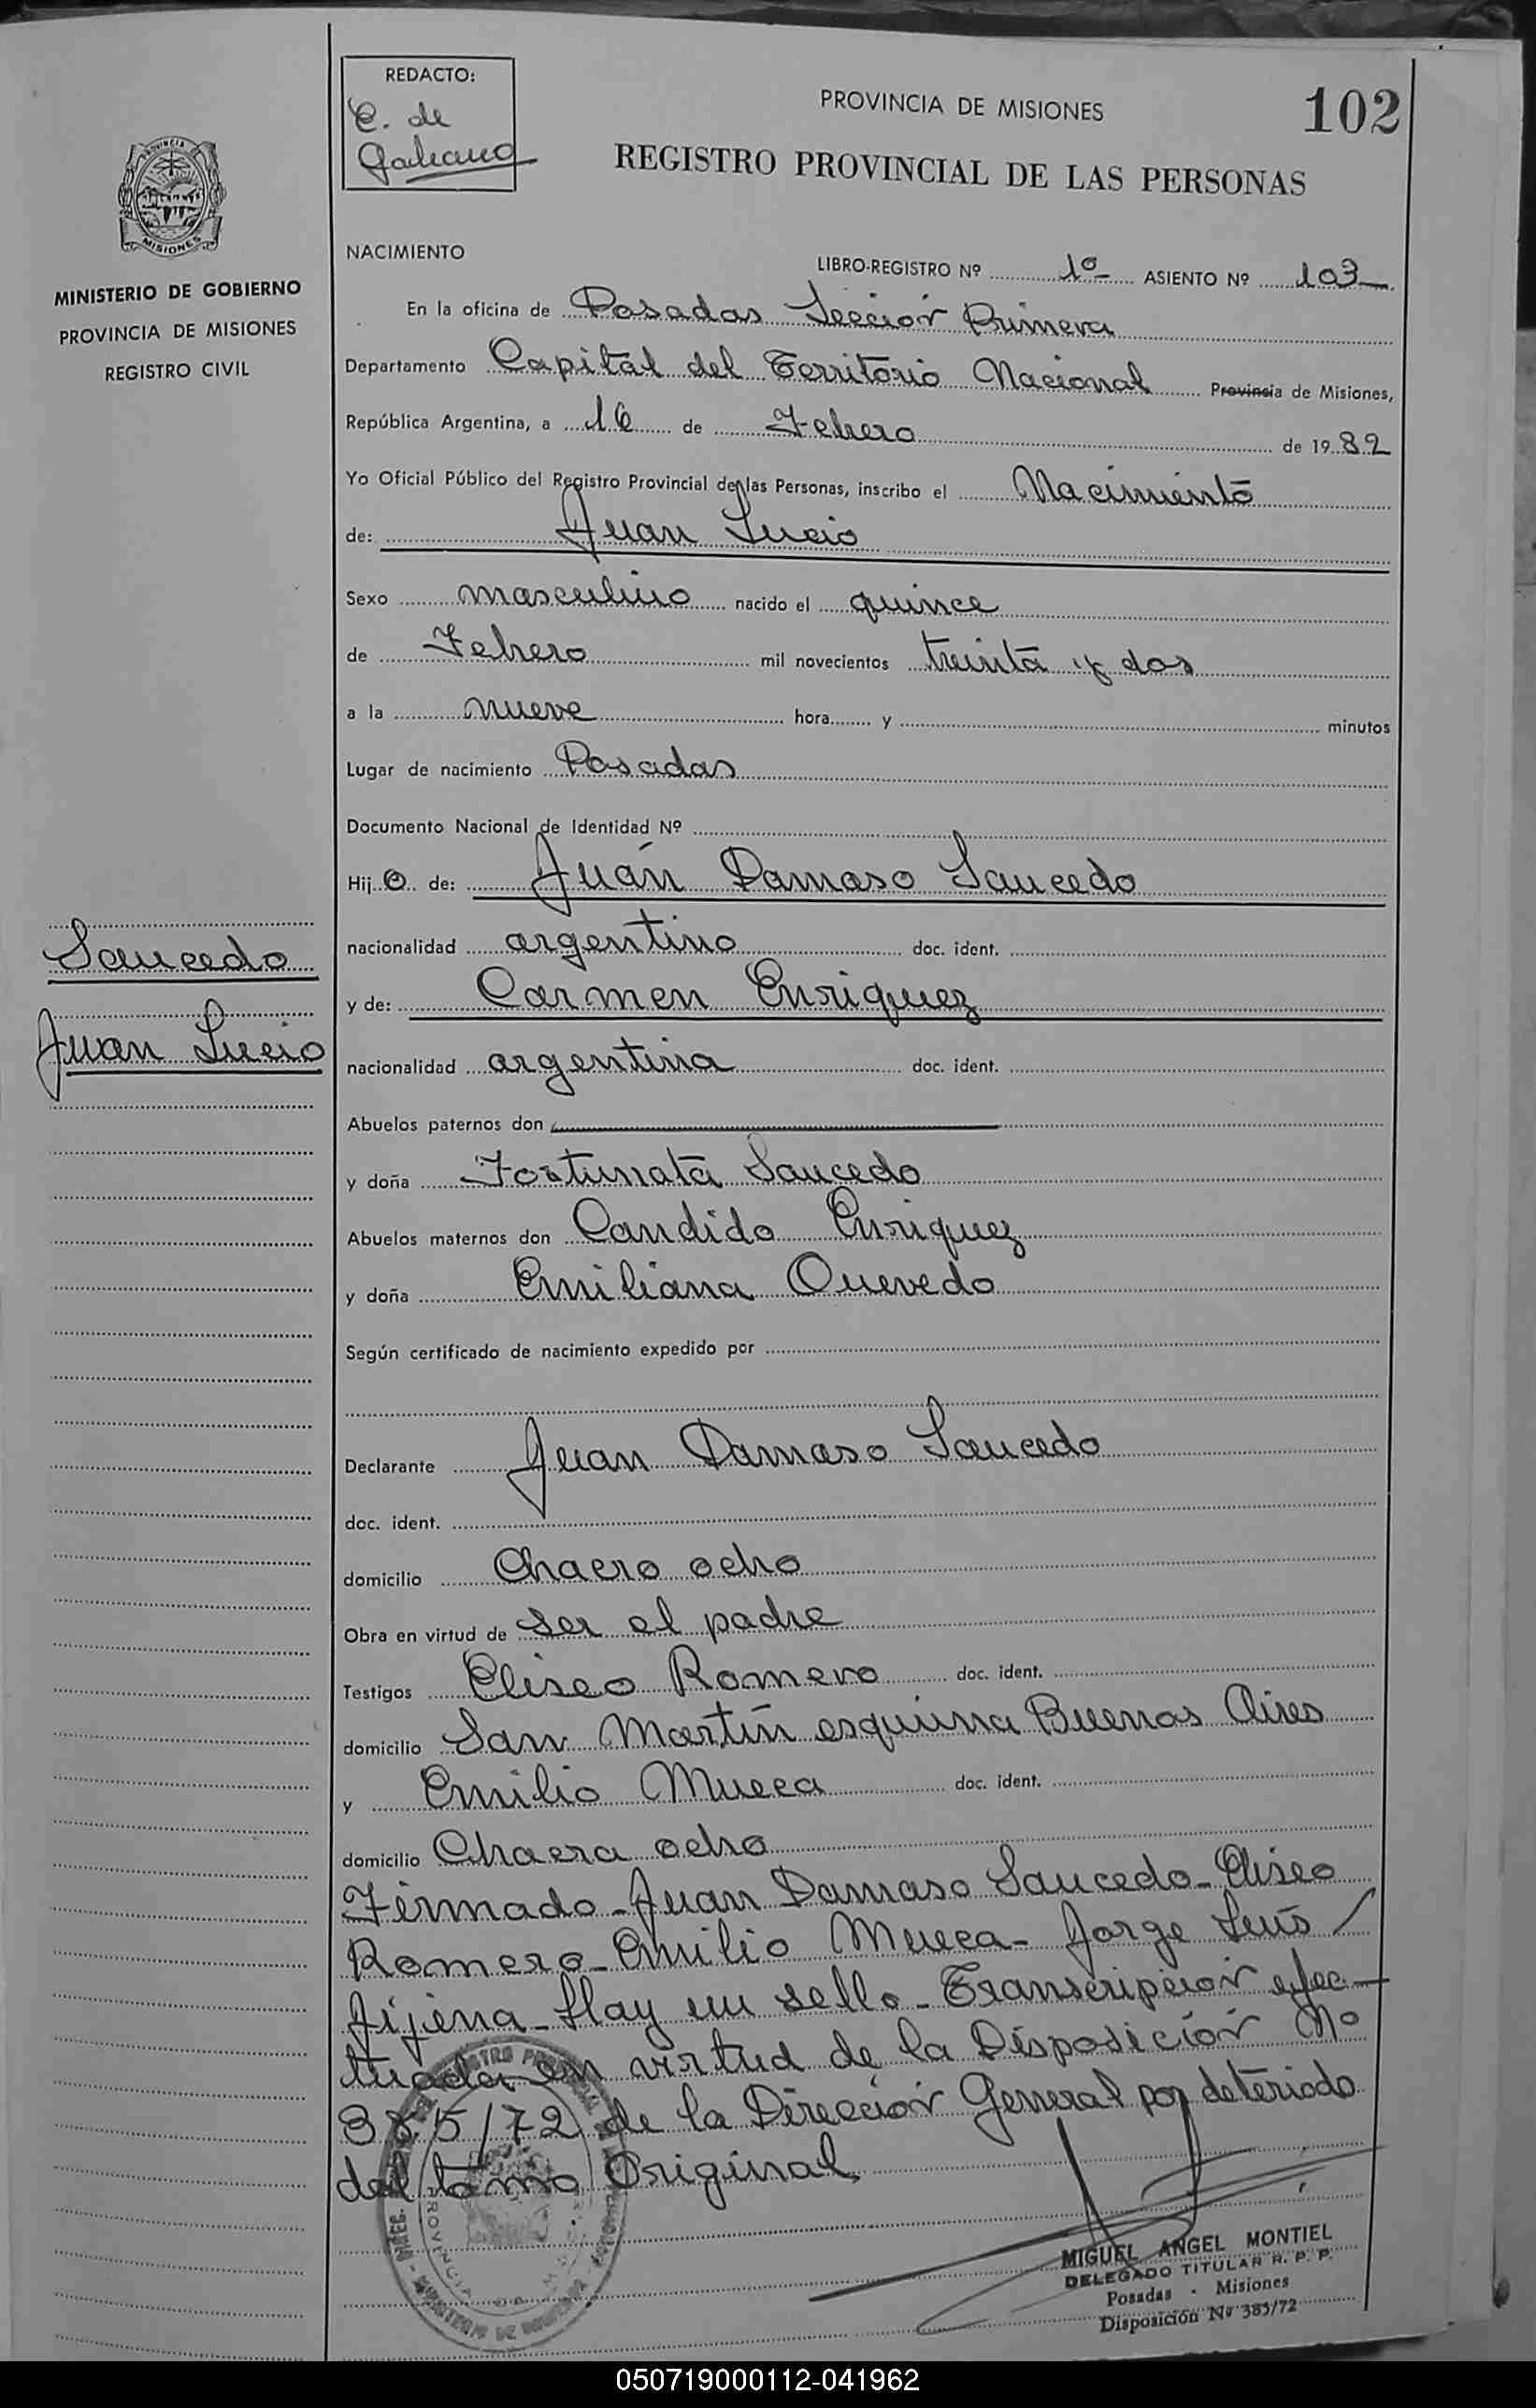 REDACTO:
C. de
Galeano
PROVINCIA DE MISIONES
102
REGISTRO PROVINCIAL DE LAS PERSONAS
PROVINCIA DE
MISIONES
MINISTERIO DE GOBIERNO
PROVINCIA DE MISIONES
REGISTRO CIVIL
NACIMIENTO
LIBRO-REGISTRO Nº 1º ASIENTO Nº 103
En la oficina de Posadas Sección Primera
Departamento Capital del Territorio Nacional Provincia de Misiones,
República Argentina, a 16 de Febrero de 19 32
Yo Oficial Público del Registro Provincial de las Personas, inscribo el Nacimiento
de: Juan Lucio
Sexo masculino nacido el quince
de Febrero mil novecientos treinta y dos
a la nueve hora y minutos
Lugar de nacimiento Posadas
Documento Nacional de Identidad Nº
Hij o de: Juan Damaso Saucedo
nacionalidad argentino doc. ident.
y de: Carmen Enriquez
nacionalidad argentina doc. ident.
Abuelos paternos don
y doña Fortunata Saucedo
Abuelos maternos don Candido Enriquez
y doña Emiliana Quevedo
Según certificado de nacimiento expedido por
Declarante Juan Damaso Saucedo
doc. ident.
domicilio Chacro ocho
Obra en virtud de ser el padre
Testigos Eliseo Romero doc. ident.
domicilio San Martin esquina Buenos Aires
y Emilio Mueca doc. ident.
domicilio Chacra ocho
Firmado-Juan Damaso Saucedo-Eliseo
Romero-Emilio Mueca-Jorge Luis /
Jijena-Hay un sello-Transcripción efec-
tuada en virtud de la Disposición Nº
385/72 de la Dirección General por deteriodo
del tomo Original
Saucedo
Juan Lucio
MIGUEL ANGEL MONTIEL
DELEGADO TITULAR R. P. P.
Posadas - Misiones
Disposición Nº 385/72
050719000112-041962